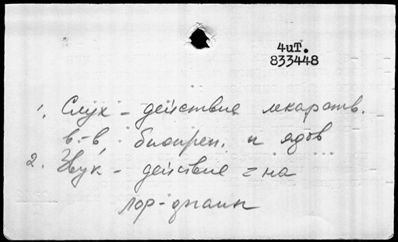 4иТ.
833448
1. Слух – действие лекарств.
в-в, биопреп. и ядов
2. Звук – действие на
Лор-органы